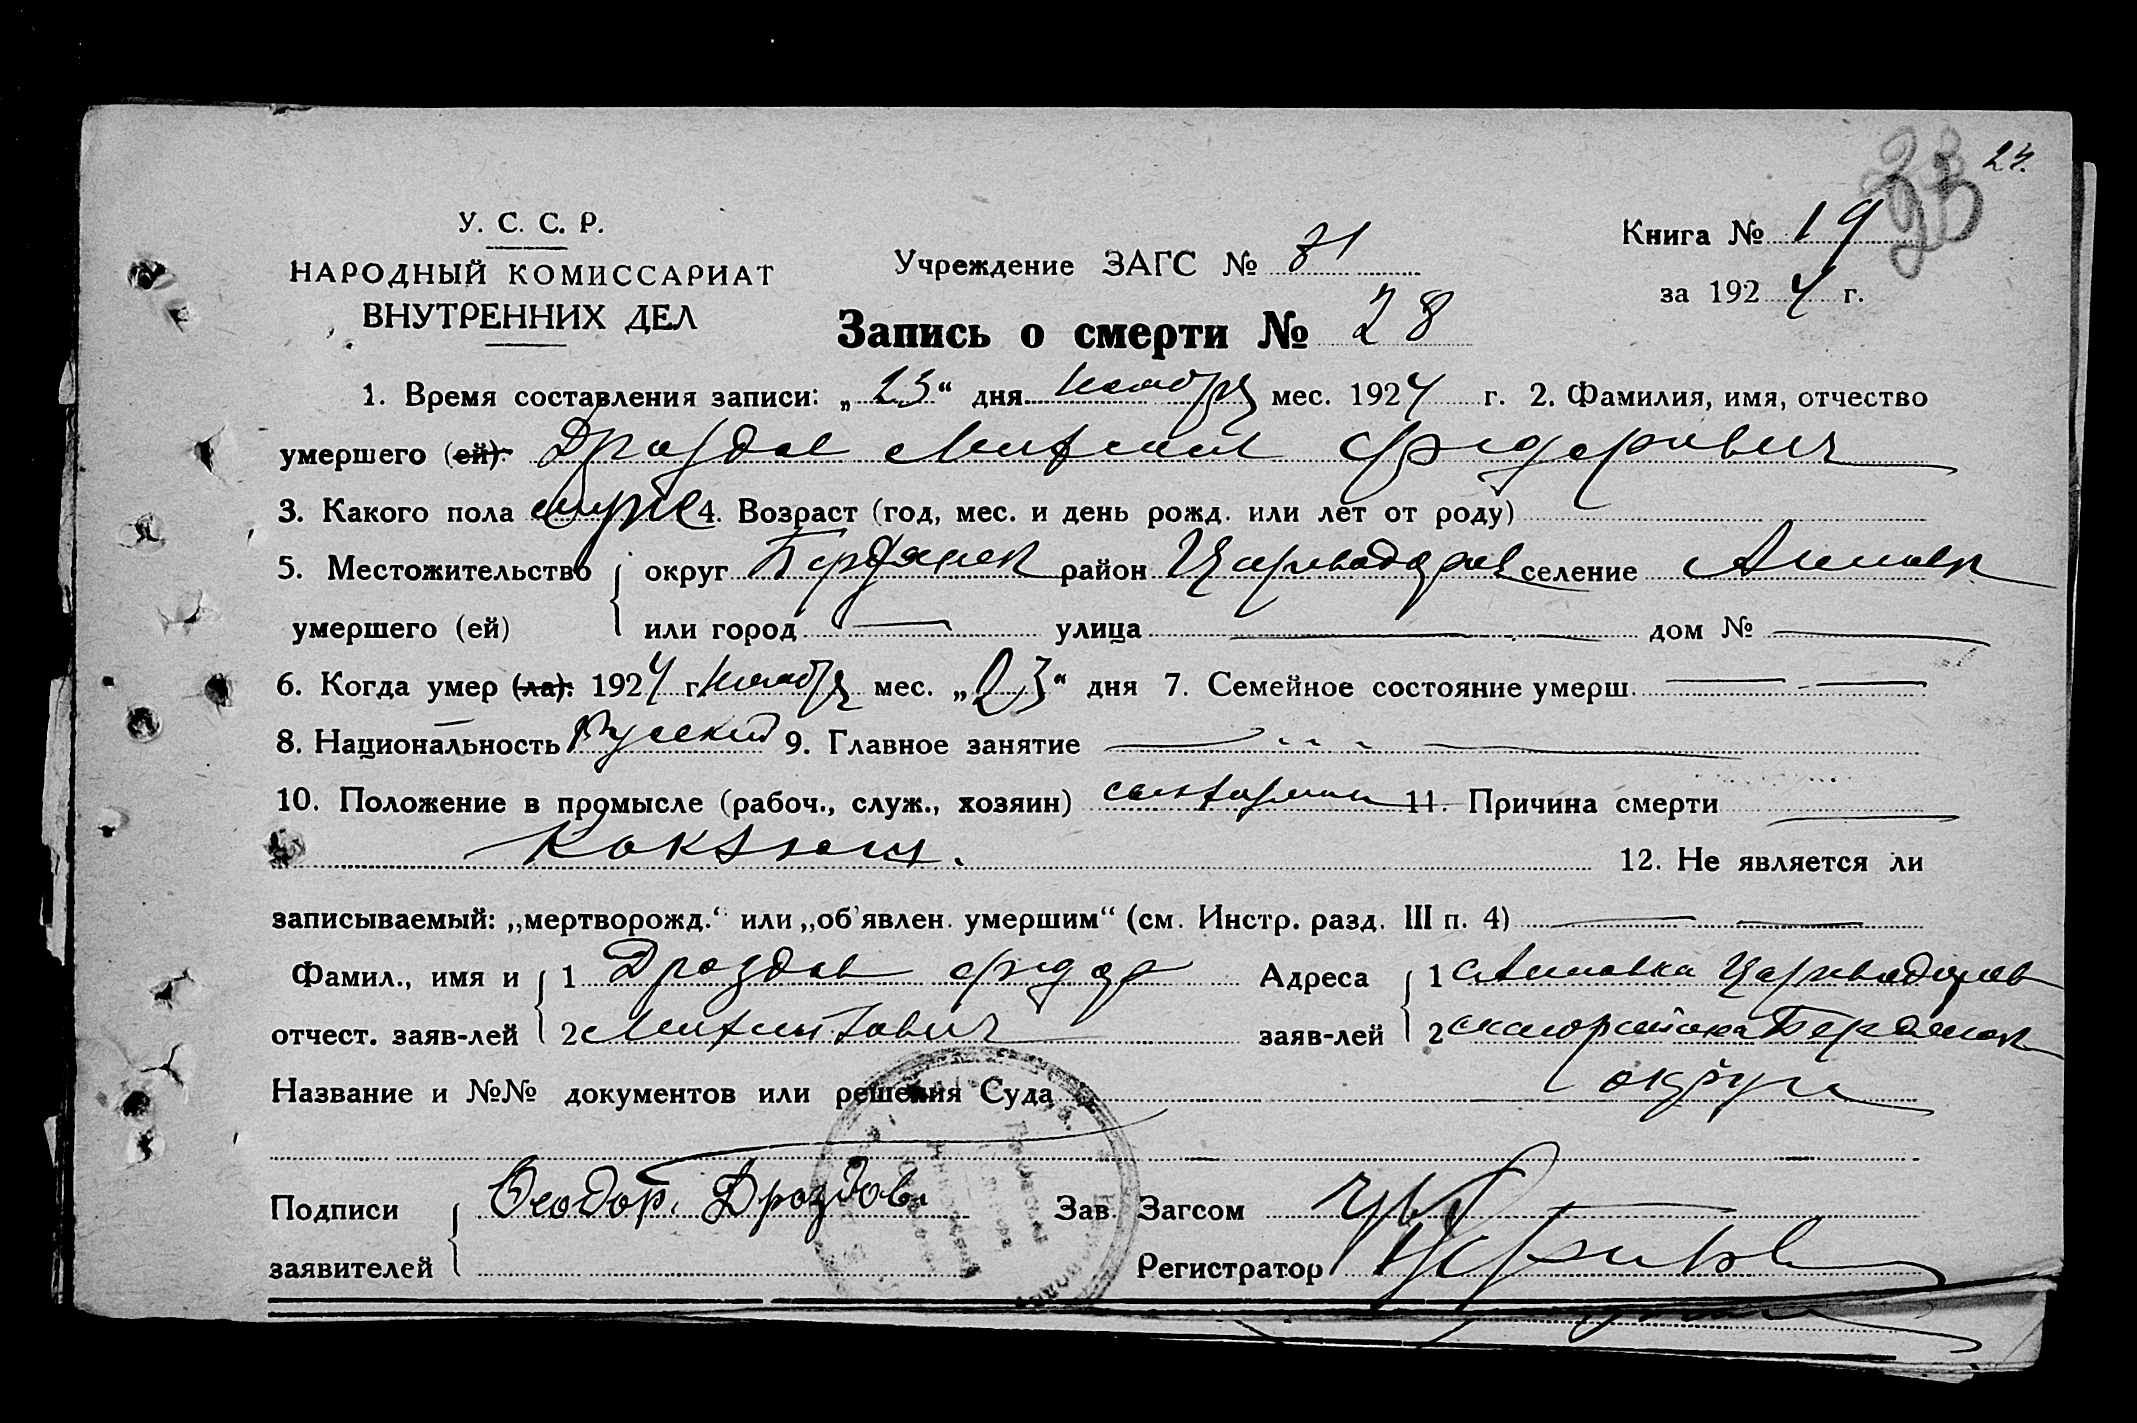 24.
У. С. С. Р.
НАРОДНЫЙ КОМИССАРИАТ
ВНУТРЕННИХ ДЕЛ
Учреждение ЗАГС № 31
Книга № 19
за 1924 г.
Запись о смерти № 28
1. Время составления записи: „23“ дня ноября мес. 1924 г. 2. Фамилия, имя, отчество
умершего (ей): Дроздов Михаил Фидерович
3. Какого пола муж 4. Возраст (год, мес. и день рожд. или лет от роду)
5. Местожительство округ Бердянск район Царевадоров селение Анновк
умершего (ей) или город — улица — дом № —
6. Когда умер (ла): 1924 г. ноября мес. „23“ дня 7. Семейное состояние умерш. — —
8. Национальность Русский 9. Главное занятие —
10. Положение в промысле (рабоч., служ., хозяин) 11. Причина смерти —
Коклюш.
12. Не является ли
записываемый: „мертворожд.“ или „об'явлен. умершим“ (см. Инстр. разд. III п. 4) — —
Фамил., имя и 1 Дроздов Фидор Адреса 1 Анновка Царевадоров
отчест. заяв-лей 2 заяв-лей 2 Бердянск
округа
Название и №№ документов или решения Суда
Подписи Феодор. Дроздов. Зав. Загсом
заявителей Регистратор